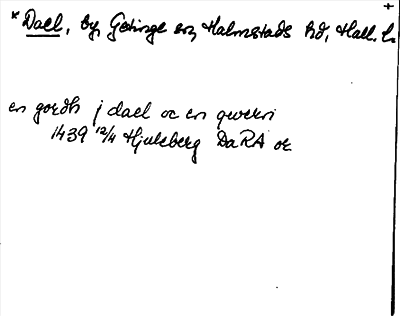 +
*Dael, by, Getinge sn, Halmstads hd, Hall. l.
en gordh j dael oc en qwern
1439 12/4 Hjuleberg DaRA or.